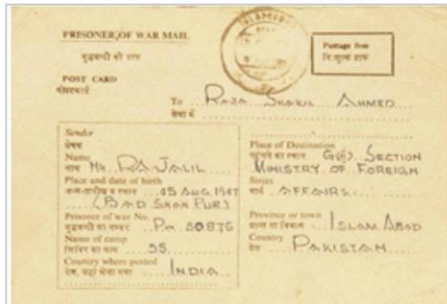 PRISONER OF WAR MAIL
युद्धबन्दी की डाक
Postage free
नि:शुल्क डाक
POST CARD
पोस्टकार्ड
To RAJA SHAKIL AHMED
सेवा में
Sender
प्रेषक
Name
नाम MR. RA JALIL
Place and date of birth
05 AUG 1947
(BAD SHAH PUR)
Prisoner of war No.
युद्धबन्दी का नम्बर PW 50876
Name of camp
शिविर का नाम 55
Country where posted
INDIA
Place of Destination
SECTION
MINISTRY OF FOREIGN
Street
मार्ग AFFAIRS
Province or town
ISLAMABAD
Country
देश PAKISTAN